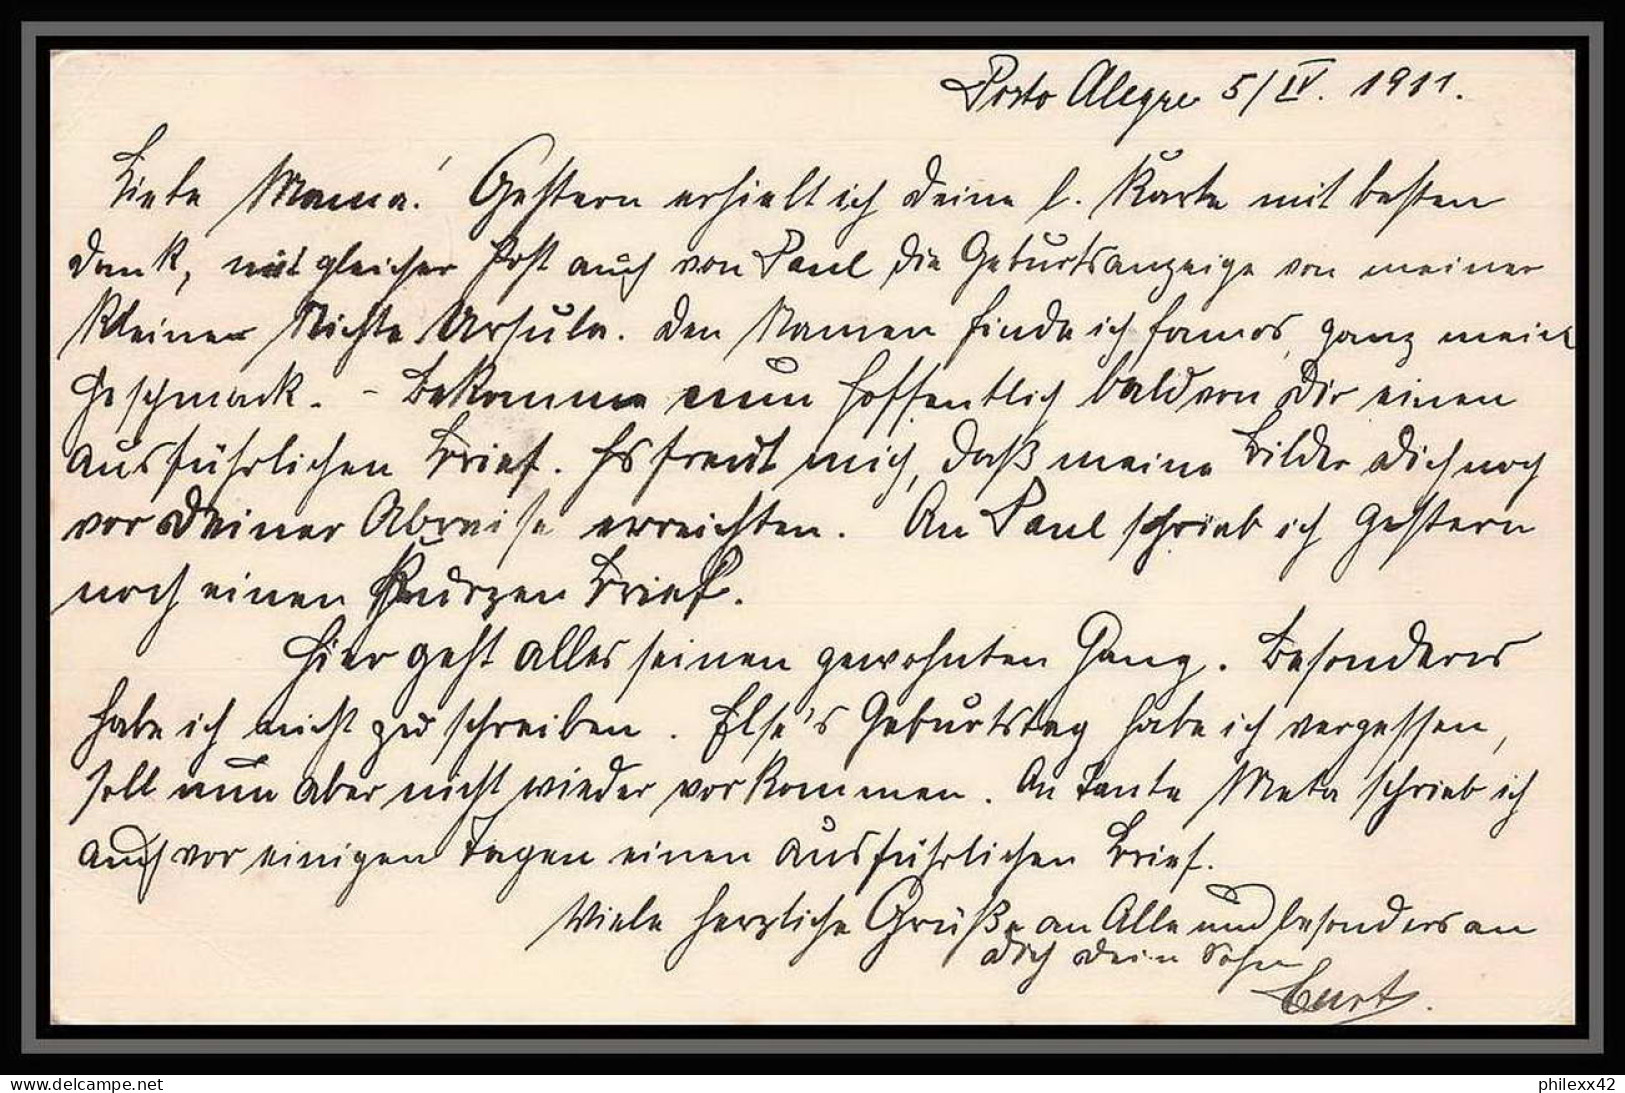 Porto Alegre 5/IV. 1911.
Liebe Mama! Gestern erhielt ich Deine l. Karte mit besten
Dank, mit gleicher Post auch von Paul die Geburtsanzeige von meiner
kleinen Nichte Ursula. Den Namen finde ich famos, ganz mein
Geschmack. – Bekomme nun hoffentlich bald von Dir einen
ausführlichen Brief. Es freut mich, daß meine Bilder Dich noch
vor Deiner Abreise erreichten. An Paul schrieb ich gestern
noch einen kurzen Brief.
Hier geht alles seinen gewohnten Gang. Besonderes
habe ich nicht zu schreiben. Else's Geburtstag habe ich vergessen,
soll nun aber nicht wieder vorkommen. An Tante Meta schrieb ich
auch vor einigen Tagen einen ausführlichen Brief.
Viele herzliche Grüße an Alle und besonders an
Dich Dein Sohn
Curt.
delcampe.net
philexx42